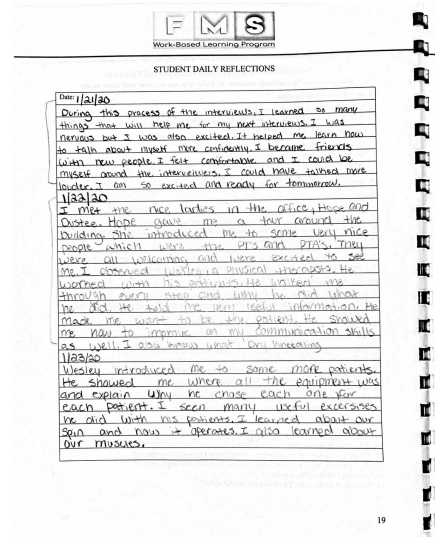 FMS
Work-Based Learning Program
STUDENT DAILY REFLECTIONS
Date: 1/21/20
During this process of the interviews, I learned so many
things that will help me for my next interviews. I was
nervous but I was also excited. It helped me learn how
to talk about myself more confidently. I became friends
with new people. I felt comfortable and I could be
myself around the interveiwers. I could have talked more
louder. I am so excited and ready for tommorow.
1/22/20
I met the nice ladies in the office, Hope and
Dustee. Hope gave me a tour around the
building. She introduced me to some very nice
people which were the PT's and PTA's. They
were all welcoming and were excited to see
me. I observed Wesley, a physical therapists. He
worked with his patients. He walked me
through every step and why he did what
he did. He told me very information. He
made me want to be the patient. He showed
me how to improve on my communication skills
as well. I also what Dry
1/23/20
Wesley introduced me to some more patients.
He showed me where all the equipment was
and explain why he chose each one for
each patient. I seen many useful excersises
he did with his patients. I learned about our
spin and how it operates. I also learned about
our muscles.
19